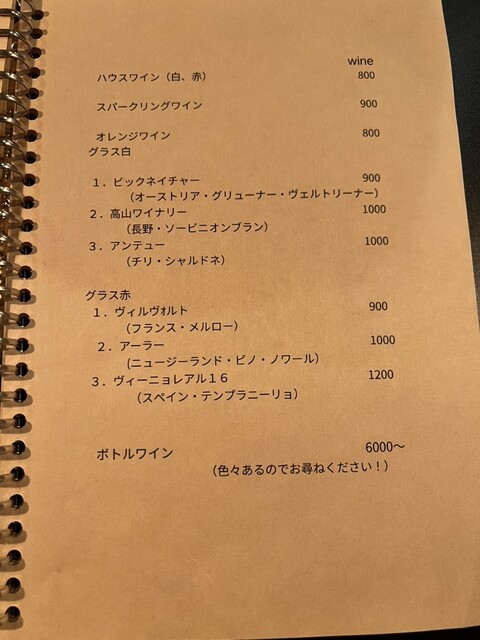 wine
ハウスワイン（白、赤） 800
スパークリングワイン 900
オレンジワイン 800
グラス白
１．ビックネイチャー 900
（オーストリア・グリューナー・ヴェルトリーナー）
２．高山ワイナリー 1000
（長野・ソービニオンブラン）
３．アンテュー 1000
（チリ・シャルドネ）
グラス赤
１．ヴィルヴォルト 900
（フランス・メルロー）
２．アーラー 1000
（ニュージーランド・ピノ・ノワール）
３．ヴィーニョレアル１６ 1200
（スペイン・テンプラニーリョ）
ボトルワイン 6000〜
（色々あるのでお尋ねください！）